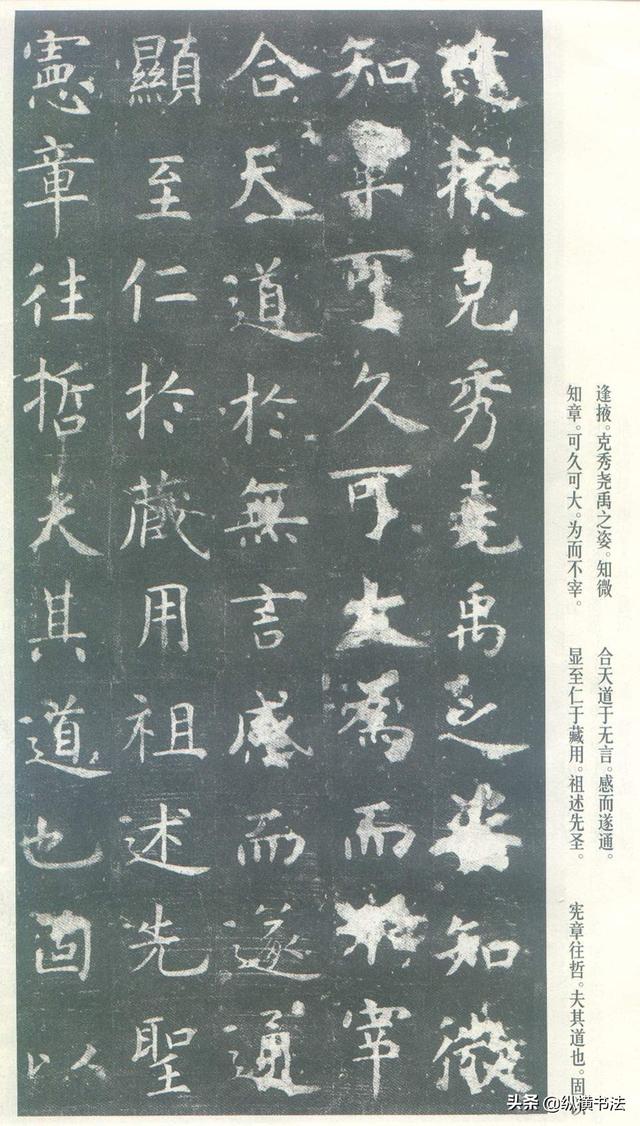 逢掖克秀堯禹之姿知微
知章可久可大爲而不宰
合天道於無言感而遂通
顯至仁於藏用祖述先聖
憲章往哲夫其道也固以
逢掖。克秀尧禹之姿。知微
知章。可久可大。为而不宰。
合天道于无言。感而遂通。
显至仁于藏用。祖述先圣。
宪章往哲。夫其道也。固
头条 @纵横书法